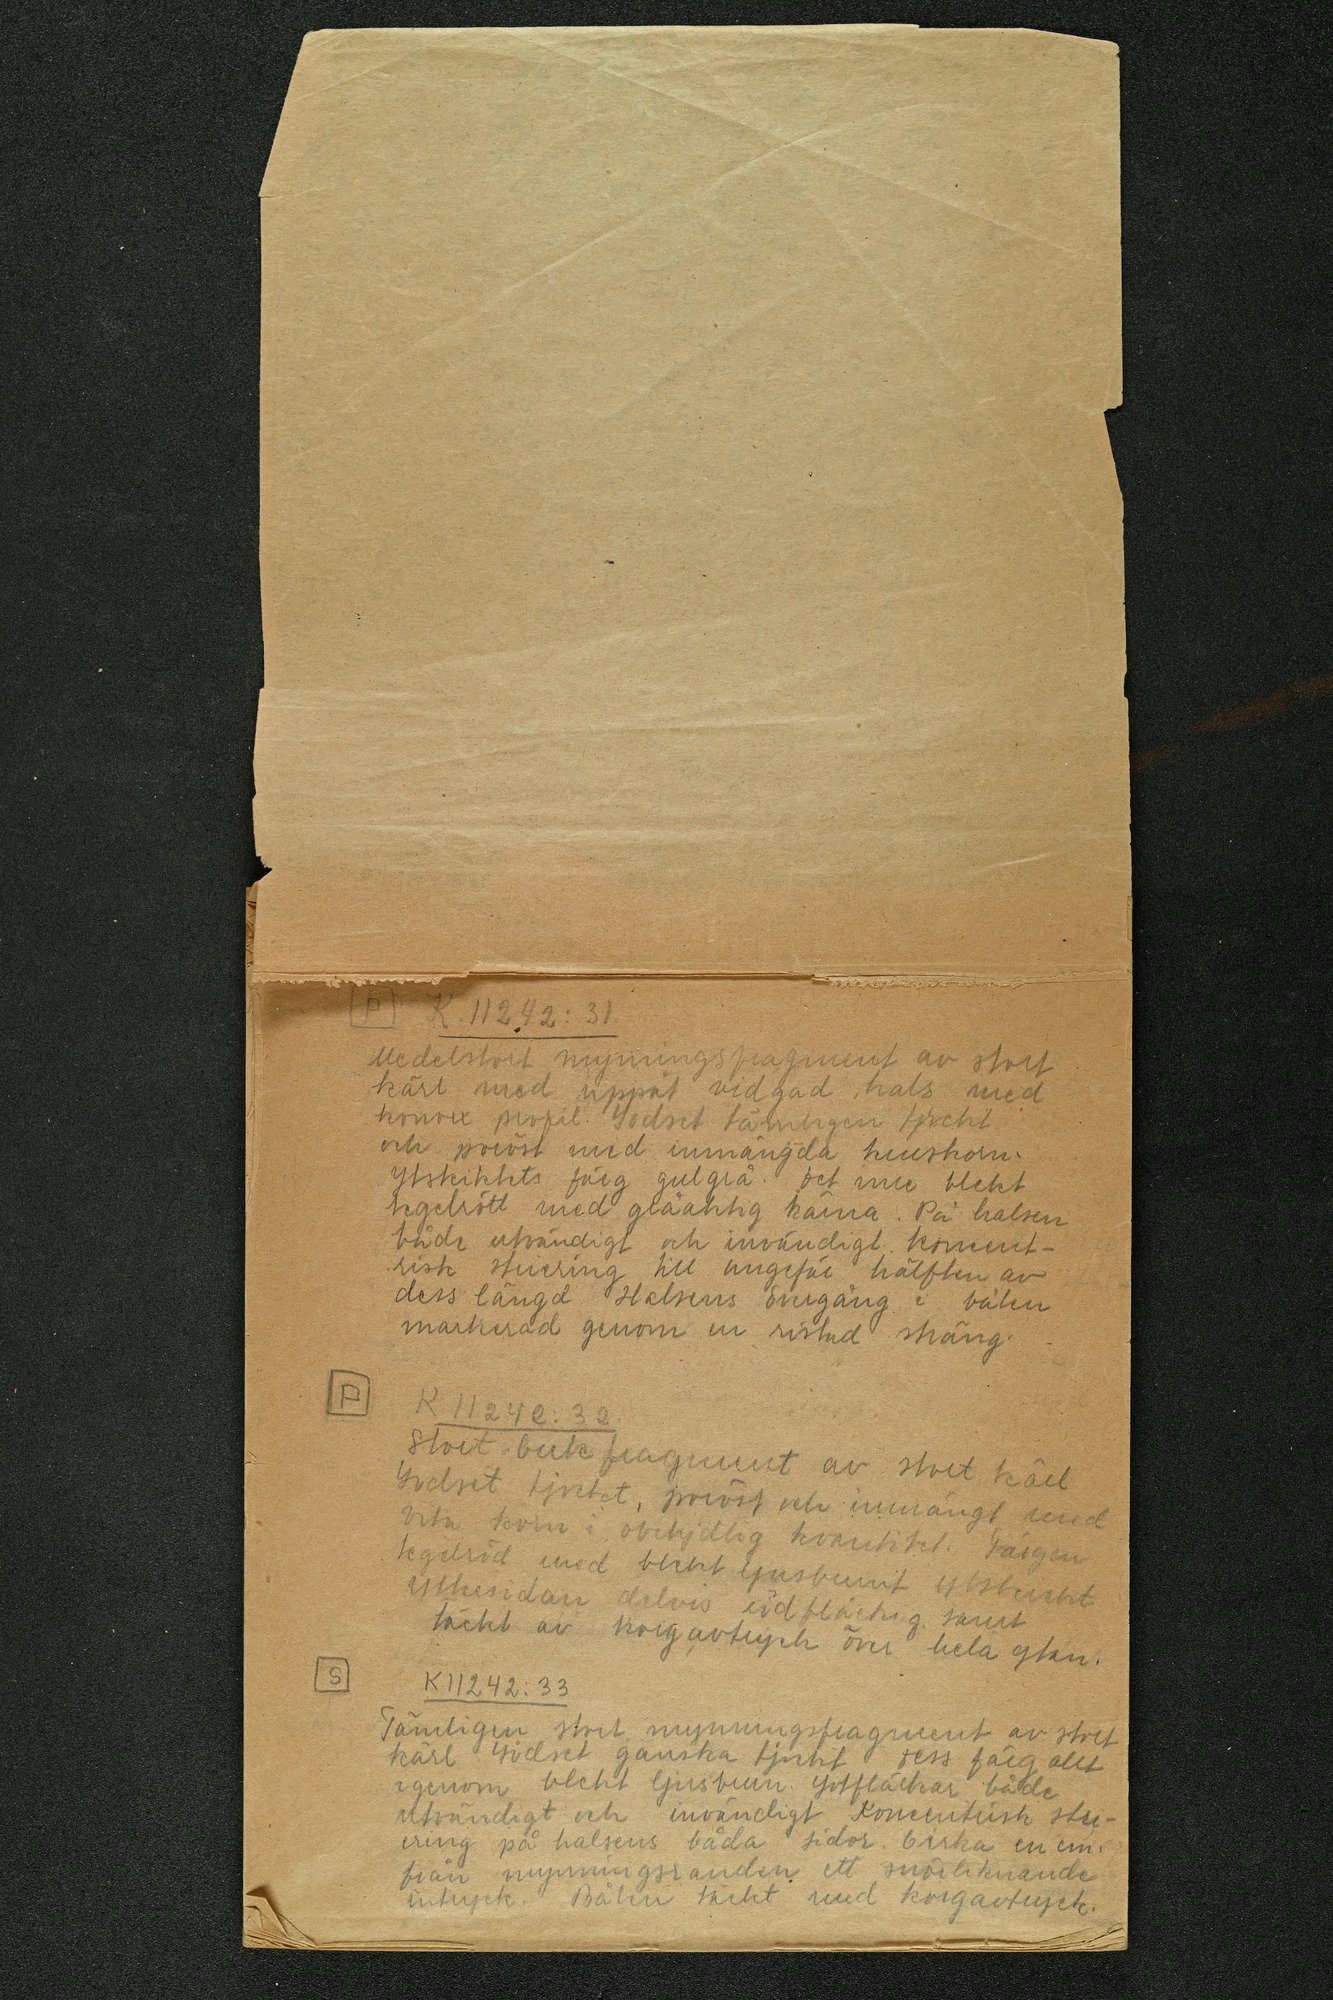 P K 11242:31
Medelstort mynningsfragment av stort
kärl med uppåt vidgad hals med
konvex profil. Godset tämligen tjockt
och poröst med inmängda kruskorn.
Ytskiktets färg gulgrå. Det inre blekt
tegelrött med gråaktig kärna. På halsen
både utvändigt och invändigt koncent-
risk struering till ungefär hälften av
dess längd Halsens övergång i bålen
markerad genom en ristad sträng.
P K 11242:32.
Stort bukfragment av stort kärl
Godset tjockt, poröst och inmängt med
vita korn i obetydlig kvantitet. Färgen
tegelröd med blekt ljusbrunt ytskikt
Yttersidan delvis rödfläckig samt
täckt av korgavtryck över hela ytan.
S K11242:33
Tämligen stort mynningsfragment av stort
kärl Godset ganska tjockt dess färg allt
igenom blekt ljusbrun. Sotfläckar både
utvändigt och invändigt Koncentrisk stru-
ering på halsens båda sidor. Cirka en cm.
från mynningsranden ett snörliknande
intryck. Bålen täckt med korgavtryck.